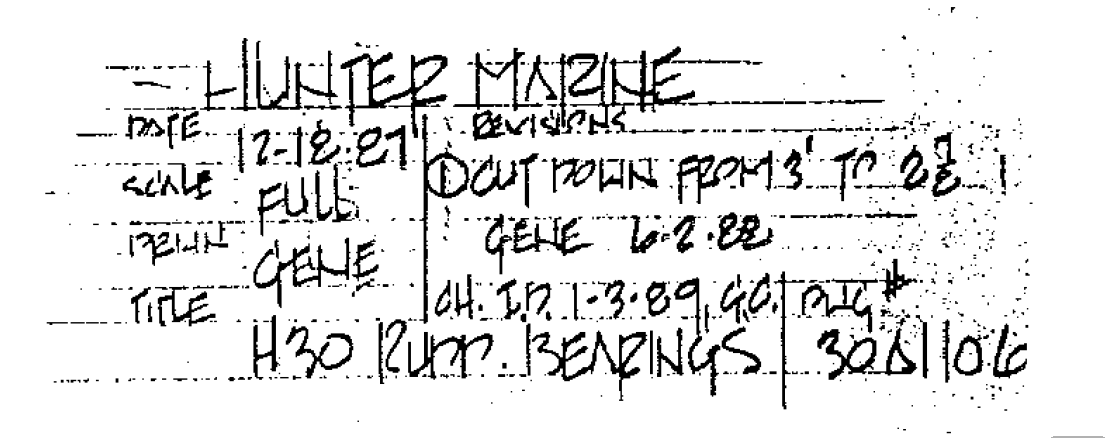 HUNTER MARINE
DATE 12-18-87 REVISIONS
SCALE FULL ① CUT DOWN FROM 3' TO 2
DRWN GENE GENE 6-2-88
TITLE CH. I.D. 1-3-89, G.C. DWG #
H30 RUDD. BEARINGS 30D1106